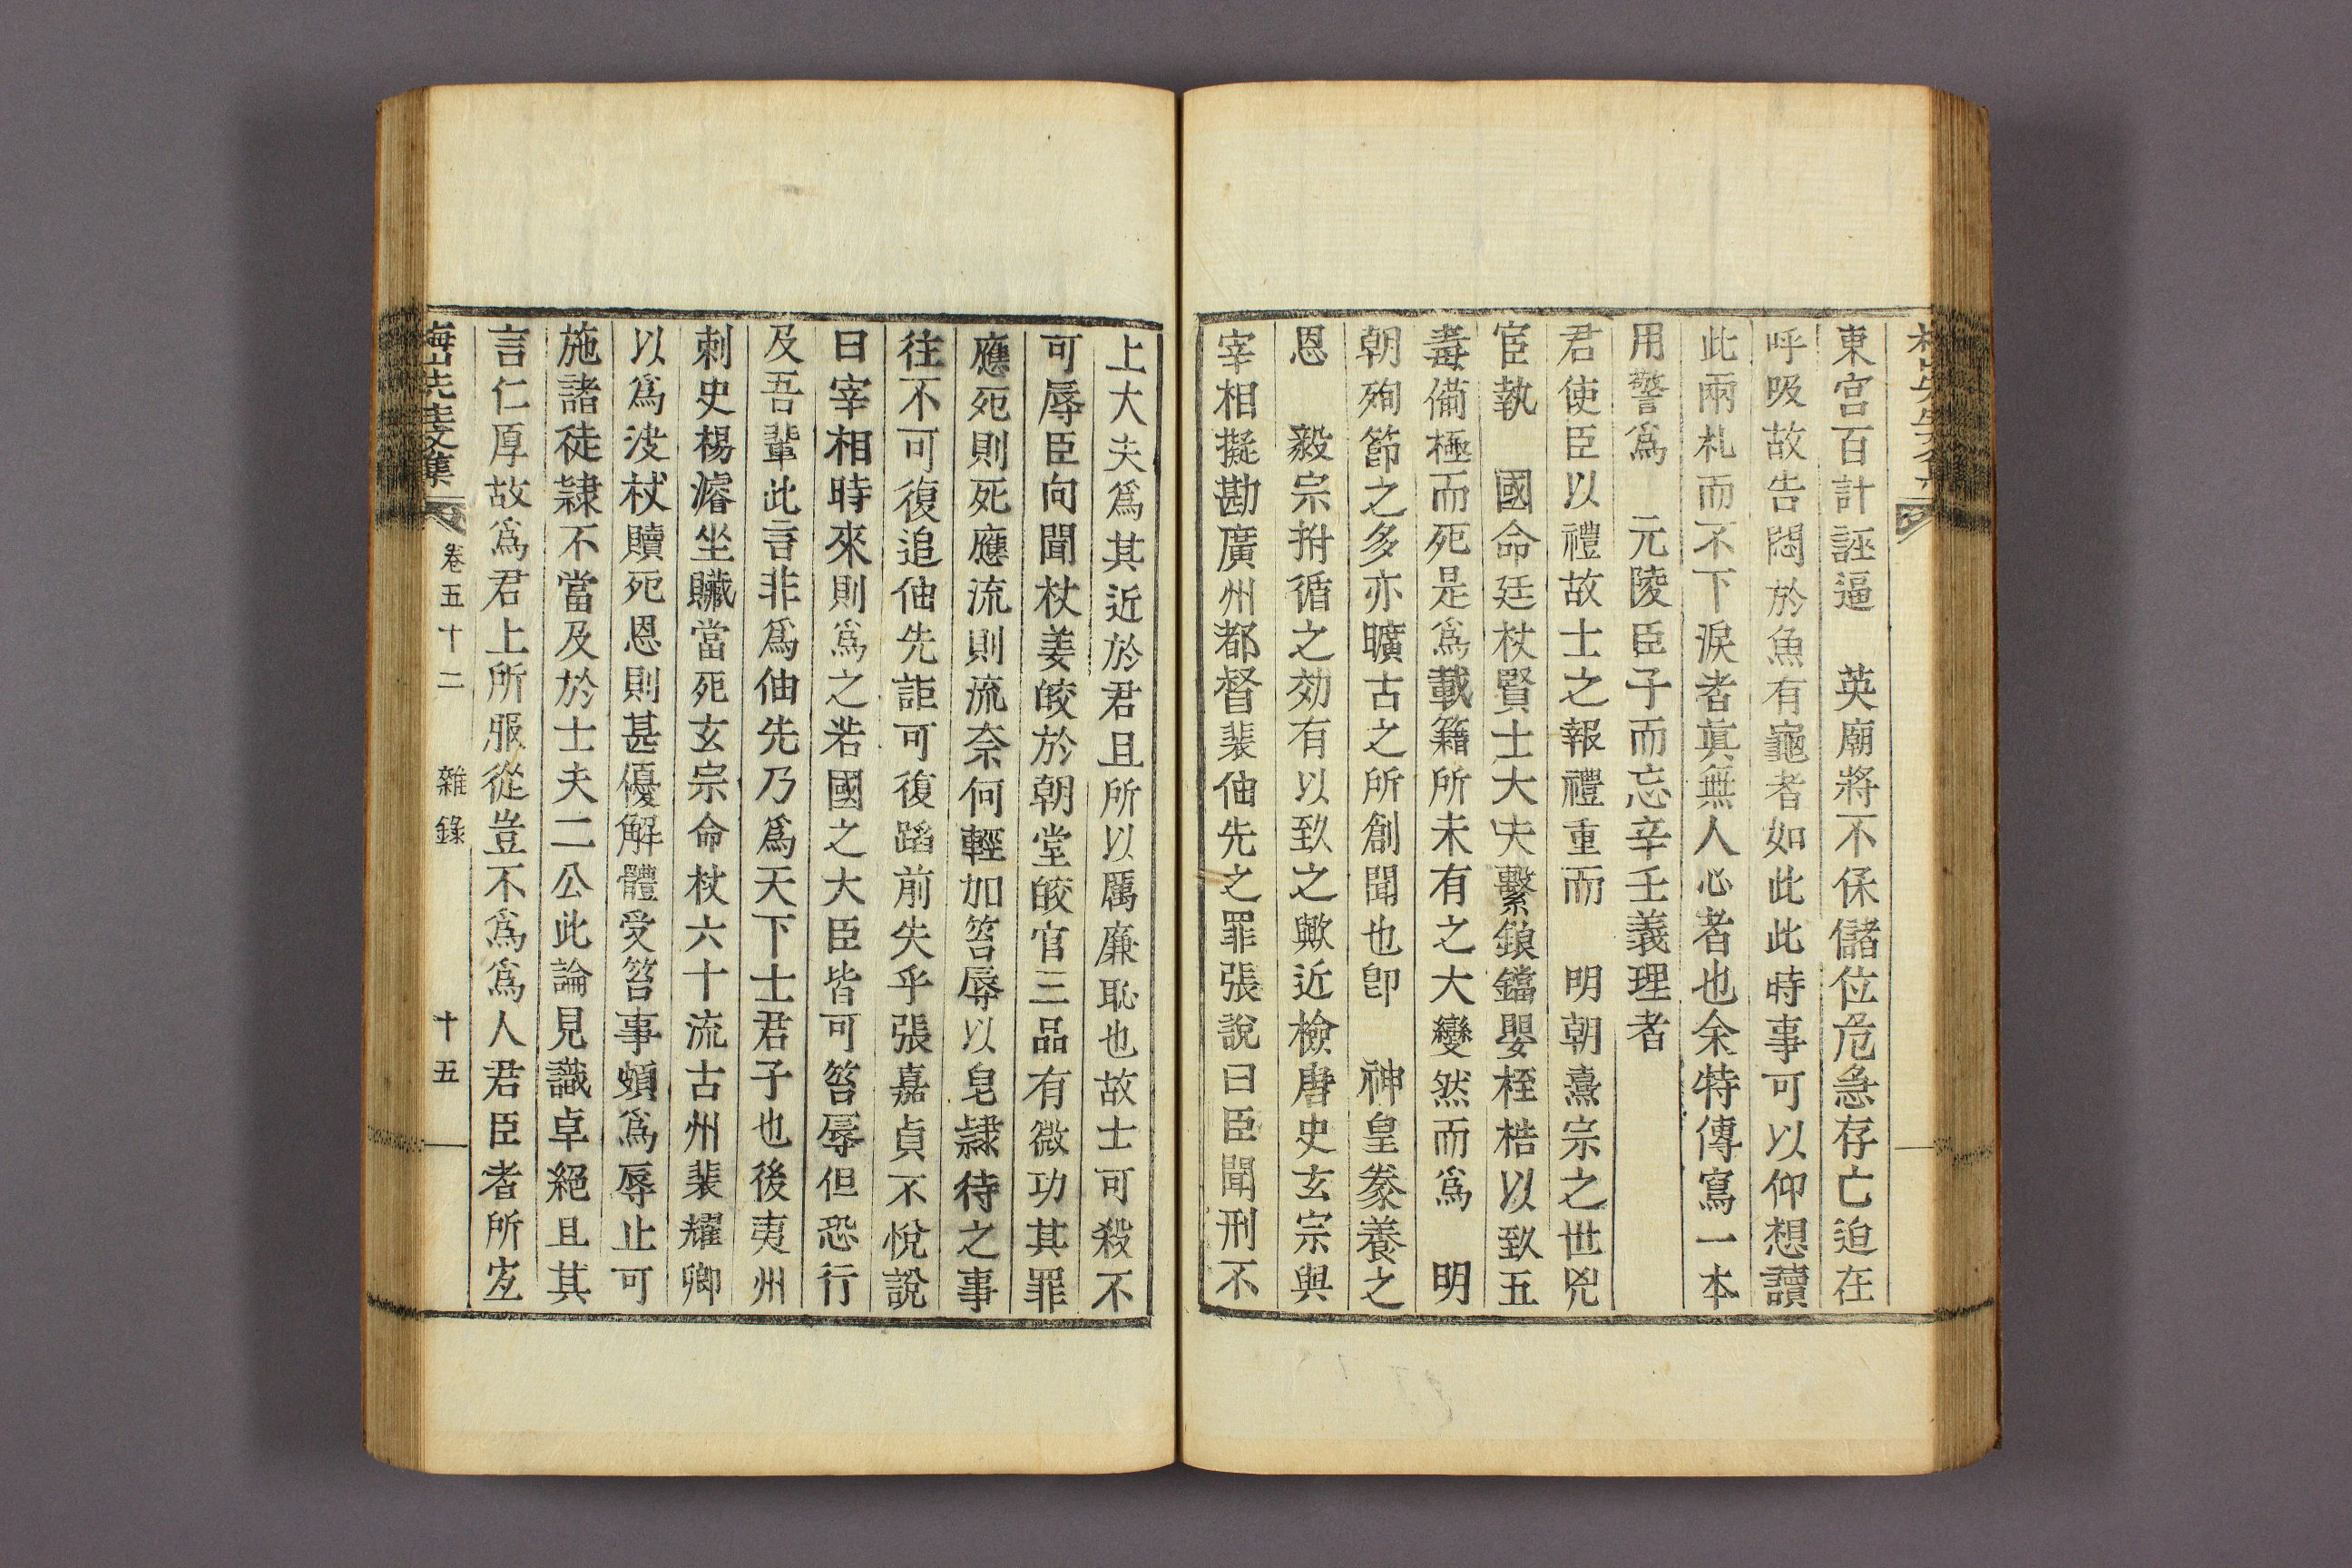 東宮百計誣逼　英廟將不保儲位危急存亡迫在
呼吸故告悶於魚有龜者如此此時事可以仰想讀
此兩札而不下淚者眞無人心者也余特傳寫一本
用警爲　元陵臣子而忘辛壬義理者
君使臣以禮故士之報禮重而　明朝熹宗之世兇
宦執　國命廷杖賢士大夫繫鎖鐺嬰桎梏以致五
毒備極而死是爲載籍所未有之大變然而爲　明
朝殉節之多亦曠古之所創聞也卽　神皇豢養之
恩　毅宗拊循之効有以致之歟近檢唐史玄宗與
宰相擬勘廣州都督裴伷先之罪張說曰臣聞刑不
上大夫爲其近於君且所以厲廉恥也故士可殺不
可辱臣向聞杖姜皎於朝堂皎官三品有微功其罪
應死則死應流則流奈何輕加笞辱以皂隷待之事
往不可復追伷先詎可復蹈前失乎張嘉貞不悅說
曰宰相時來則爲之若國之大臣皆可笞辱但恐行
及吾輩此言非爲伷先乃爲天下士君子也後夷州
刺史楊濬坐贓當死玄宗命杖六十流古州裴耀卿
以爲决杖贖死恩則甚優解體受笞事頗爲辱止可
施諸徒隷不當及於士夫二公此論見識卓絕且其
言仁厚故爲君上所服從豈不爲爲人君臣者所宜
梅山先生文集　卷五十二　雜錄　十五